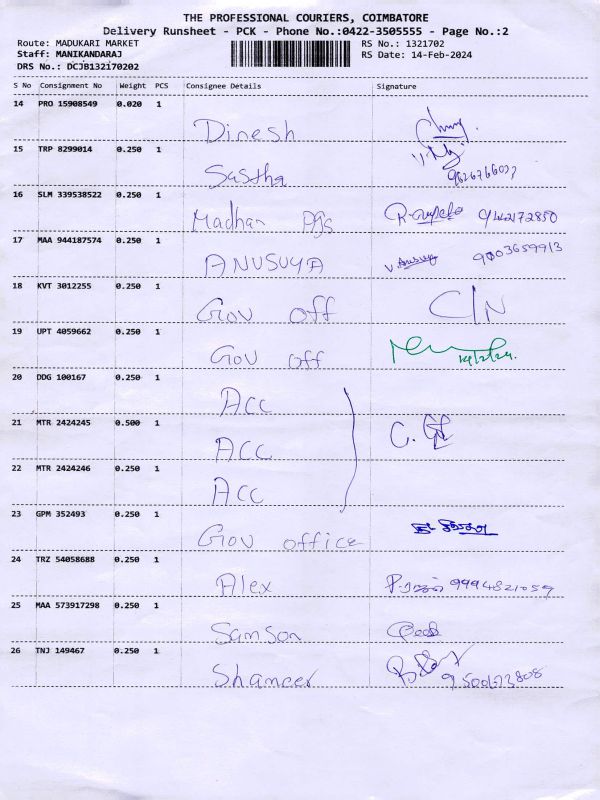 THE PROFESSIONAL COURIERS, COIMBATORE
Delivery Runsheet - PCK - Phone No.:0422-3505555 - Page No.:2
Route: MADUKARI MARKET RS No.: 1321702
Staff: MANIKANDARAJ RS Date: 14-Feb-2024
DRS No.: DCJB132170202
S No Consignment No Weight PCS Consignee Details Signature
14 PRO 15908549 0.020 1 Dinesh
15 TRP 8299014 0.250 1 Sastha
16 SLM 339538522 0.250 1 Madhan pgs 9442172850
17 MAA 944187574 0.250 1 ANUSUYA V. Anusuya 9003659913
18 KVT 3012255 0.250 1 Gov off C/N
19 UPT 4059662 0.250 1 Gov off 14/2/24.
20 DDG 100167 0.250 1 ACC
21 MTR 2424245 0.500 1 ACC
22 MTR 2424246 0.250 1 ACC
23 GPM 352493 0.250 1 Gov office
24 TRZ 54058688 0.250 1 Alex 9994821059
25 MAA 573917298 0.250 1 Samson
26 TNJ 149467 0.250 1 Shancer